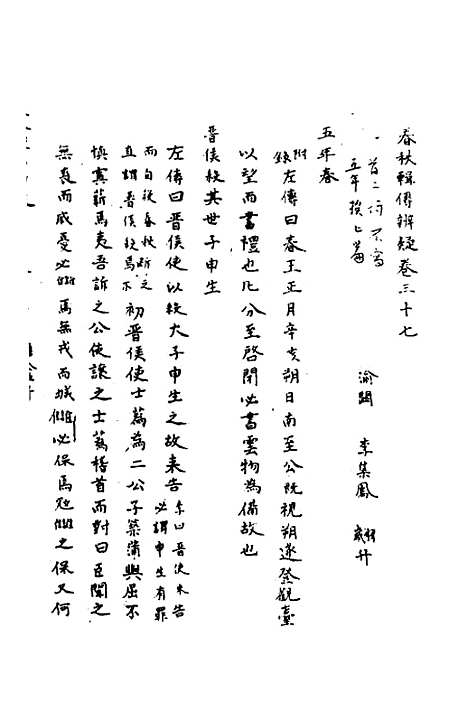 春秋輯傳辨疑卷三十七
渝關 李集鳳
五年
五年春
附錄左傳曰春王正月辛亥朔日南至公既視朔遂登觀臺
以望而書禮也凡分至啓閉必書雲物為備故也
晉侯殺其世子申生
左傳曰晉侯使以殺大子申生之故來告
必謂申生有罪
而自從春秋
直謂晉侯殺焉
初晉侯使士蒍為二公子築蒲與屈不
慎寘薪焉夷吾訴之公使讓之士蒍稽首而對曰臣聞之
無喪而慼憂必讎焉無戎而城讎必保焉寇讎之保又何